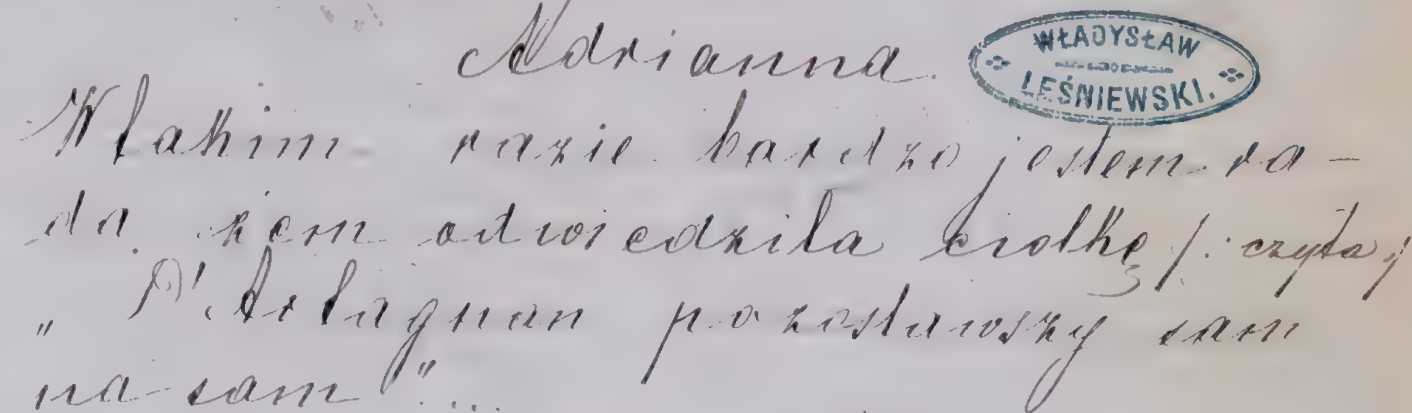 Adrianna.
WŁADYSŁAW
LEŚNIEWSKI.
W takim razie bardzo jestem ra-
da żem odwiedziła ciotkę /: czyta :/
„D'Artagnan pozostawszy sam
na sam"...